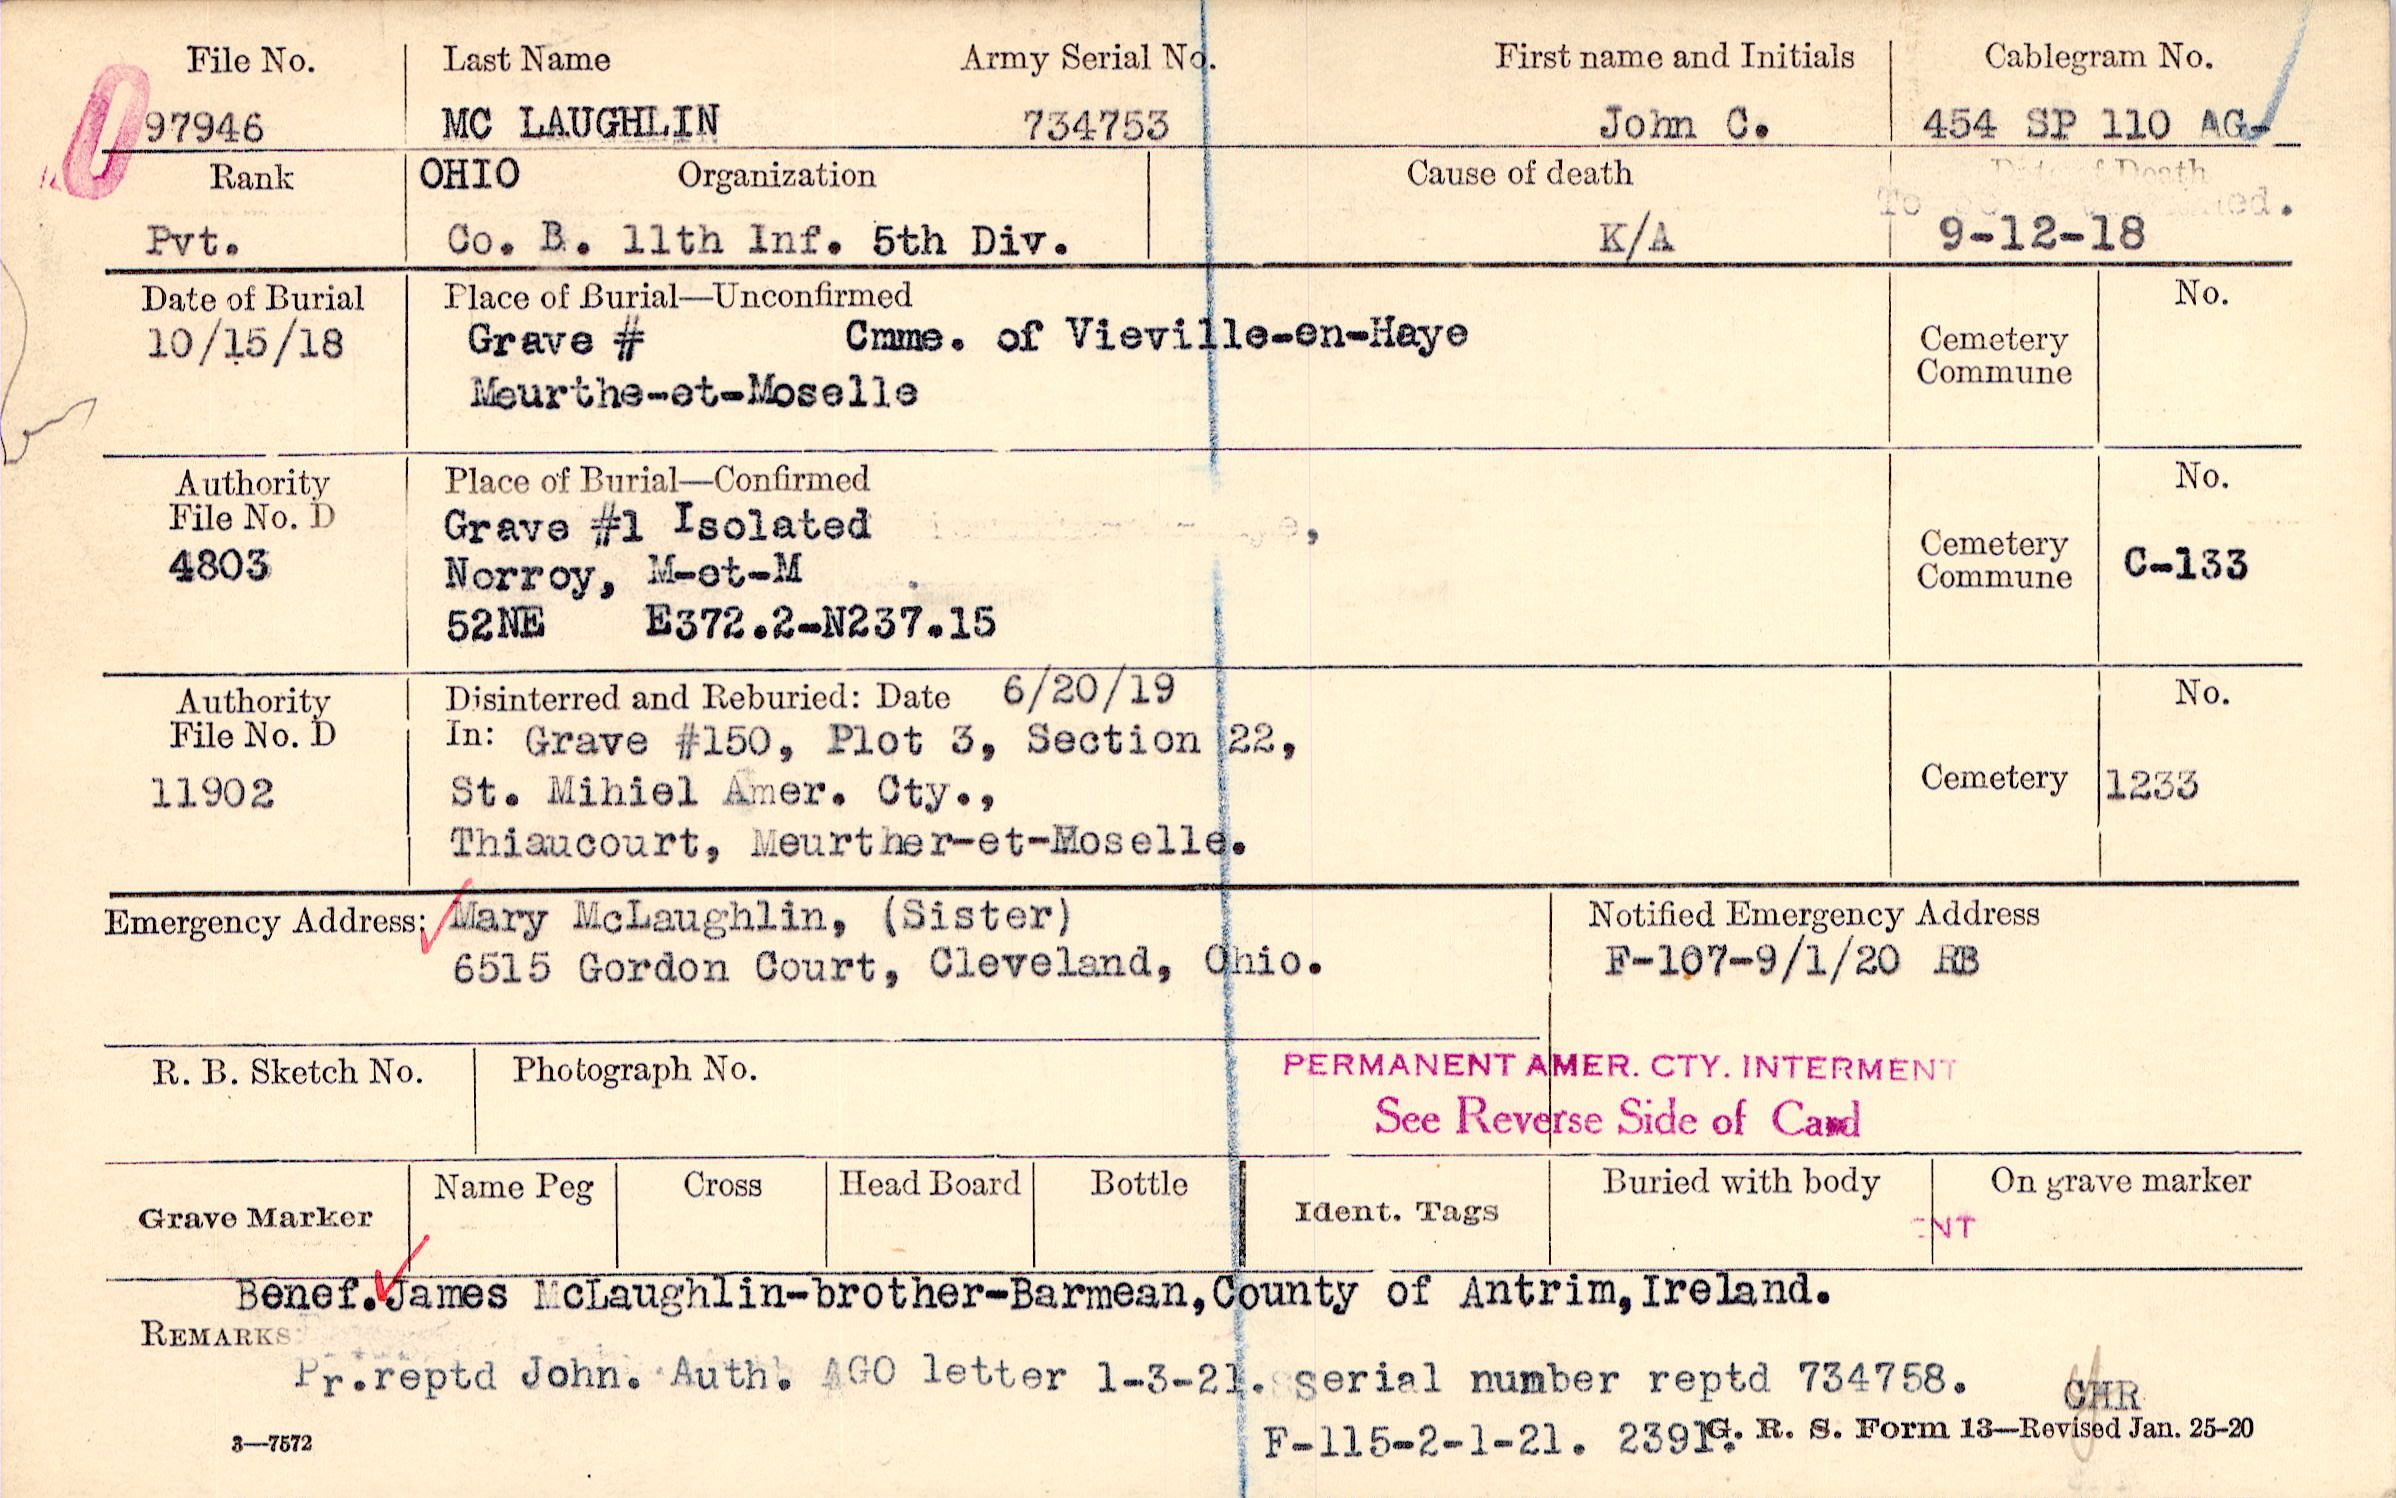 File No. Last Name Army Serial No. First name and Initials Cablegram No.
97946 MC LAUGHLIN 734753 John C. 454 SP 110 AG-
Rank OHIO Organization Cause of death Date of Death
Pvt. Co. B. 11th Inf. 5th Div. K/A 9-12-18
Date of Burial Place of Burial—Unconfirmed No.
10/15/18 Grave # Cmme. of Vieville-en-Haye Cemetery
Meurthe-et-Moselle Commune
Authority Place of Burial—Confirmed No.
File No. D Grave #1 Isolated Cemetery
4803 Norroy, M-et-M Commune C-133
52NE E372.2-N237.15
Authority Disinterred and Reburied: Date 6/20/19 No.
File No. D In: Grave #150, Plot 3, Section 22,
11902 St. Mihiel Amer. Cty., Cemetery 1233
Thiaucourt, Meurther-et-Moselle.
Emergency Address: Mary McLaughlin, (Sister) Notified Emergency Address
6515 Gordon Court, Cleveland, Ohio. F-107-9/1/20 RB
R. B. Sketch No. Photograph No. PERMANENT AMER. CTY. INTERMENT
See Reverse Side of Card
Grave Marker Name Peg Cross Head Board Bottle Ident. Tags Buried with body On grave marker
NT
Benef. James McLaughlin-brother-Barmean, County of Antrim, Ireland.
REMARKS
Pr.reptd John. Auth. AGO letter 1-3-21. serial number reptd 734758. CHR
3—7572 F-115-2-1-21. 2391. G. R. S. Form 13—Revised Jan. 25-20